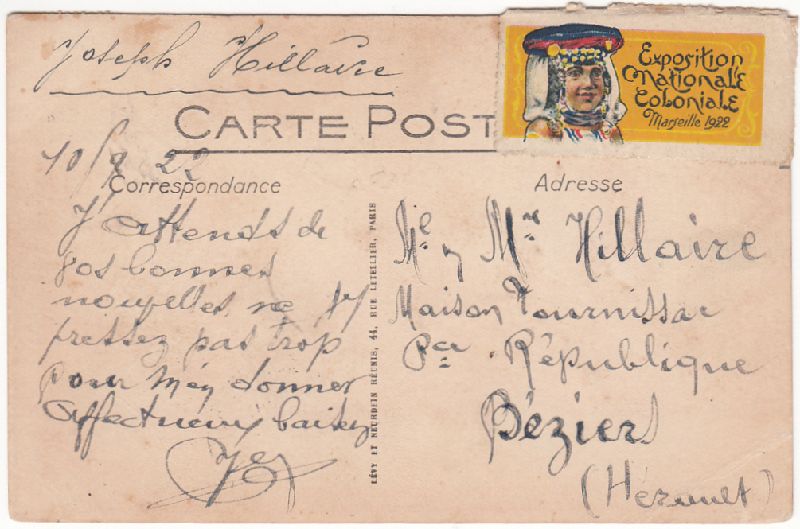 Joseph Hillaire
Exposition
Nationale
Coloniale
Marseille 1922
CARTE POST
10/8 22
Correspondance
Adresse
J'attends de
vos bonnes
nouvelles ne
pressez pas trop
pour m'en donner
Affectueux baisers
Mle y Mr Hillaire
Maison Fournissac
Pce République
Béziers
(Hérault)
LÉVY ET NEURDEIN RÉUNIS, 44, RUE LETELLIER, PARIS